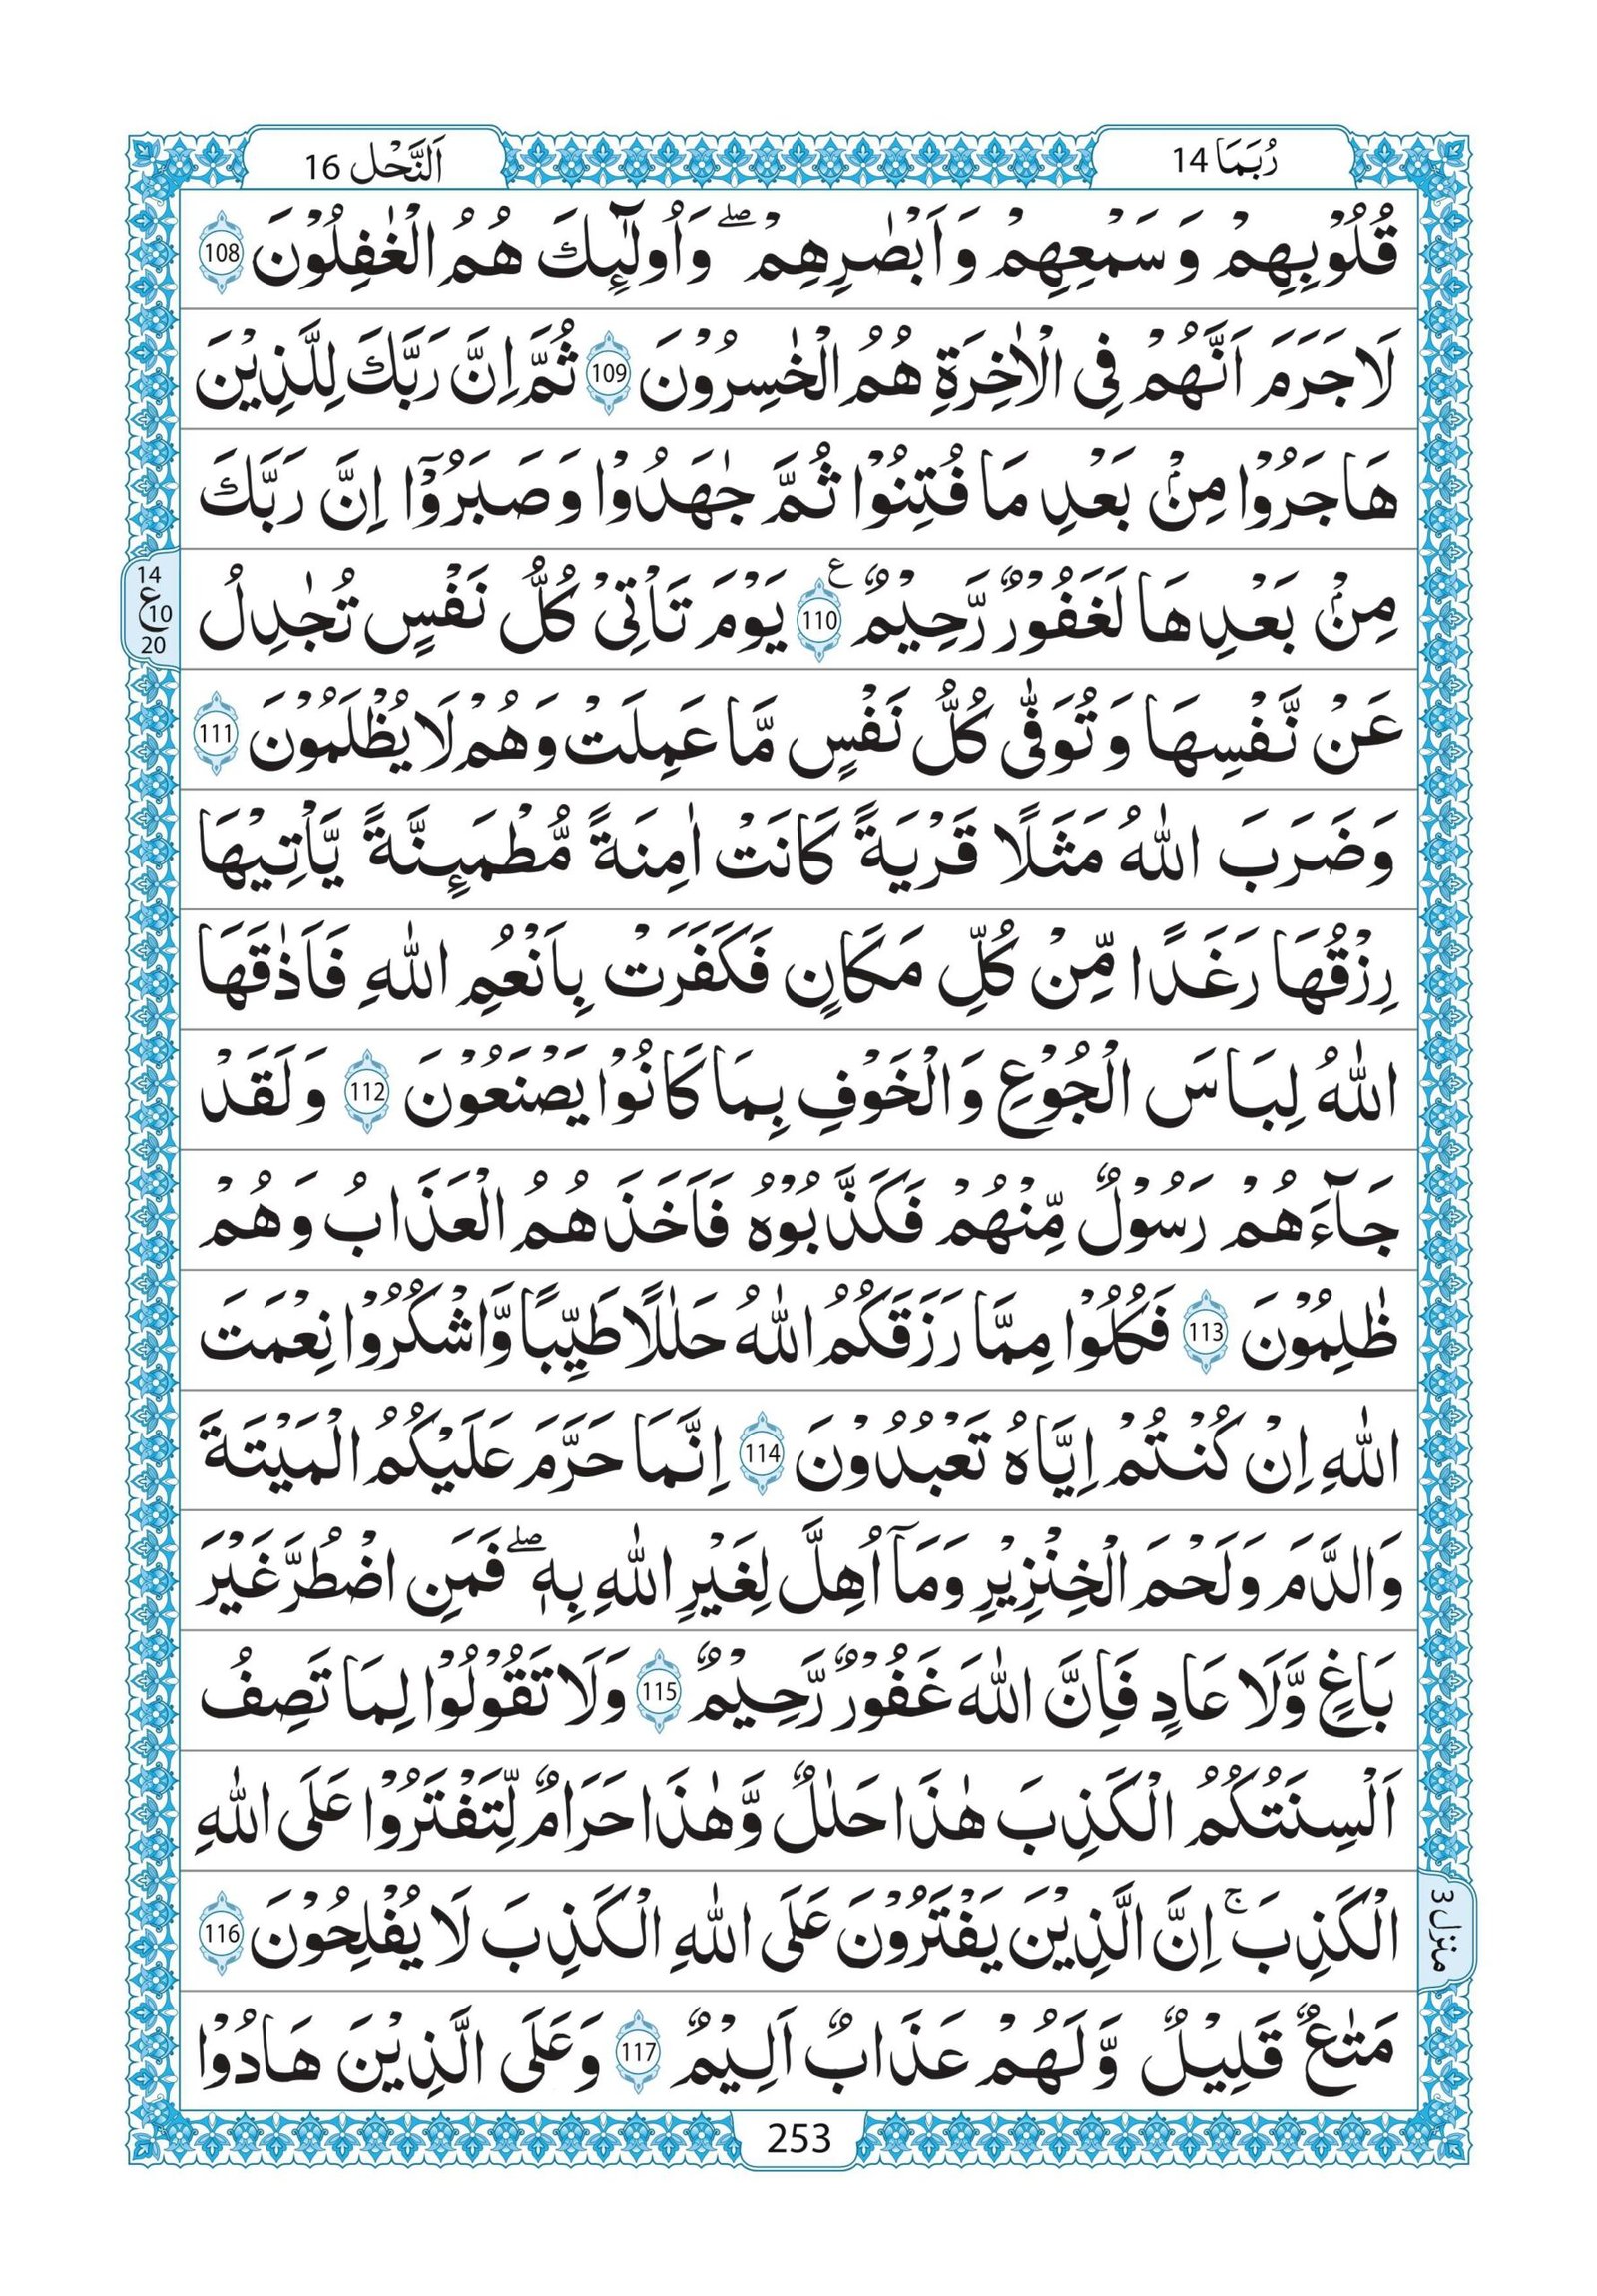 رُبَمَا 14
اَلنَّحْل 16
قُلُوْبِهِمْ وَ سَمْعِهِمْ وَ اَبْصٰرِهِمْ ۖ وَاُولٰٓىِٕكَ هُمُ الْغٰفِلُوْنَ 108
لَا جَرَمَ اَنَّهُمْ فِى الْاٰخِرَةِ هُمُ الْخٰسِرُوْنَ 109 ثُمَّ اِنَّ رَبَّكَ لِلَّذِيْنَ
هَاجَرُوْا مِنْۢ بَعْدِ مَا فُتِنُوْا ثُمَّ جٰهَدُوْا وَ صَبَرُوْٓا اِنَّ رَبَّكَ
مِنْۢ بَعْدِهَا لَغَفُوْرٌ رَّحِيْمٌ 110 ع يَوْمَ تَاْتِىْ كُلُّ نَفْسٍ تُجٰدِلُ
14
ع 10
20
عَنْ نَّفْسِهَا وَ تُوَفّٰى كُلُّ نَفْسٍ مَّا عَمِلَتْ وَهُمْ لَا يُظْلَمُوْنَ 111
وَضَرَبَ اللّٰهُ مَثَلًا قَرْيَةً كَانَتْ اٰمِنَةً مُّطْمَىِٕنَّةً يَّاْتِيْهَا
رِزْقُهَا رَغَدًا مِّنْ كُلِّ مَكَانٍ فَكَفَرَتْ بِاَنْعُمِ اللّٰهِ فَاَذٰقَهَا
اللّٰهُ لِبَاسَ الْجُوْعِ وَالْخَوْفِ بِمَا كَانُوْا يَصْنَعُوْنَ 112 وَلَقَدْ
جَآءَهُمْ رَسُوْلٌ مِّنْهُمْ فَكَذَّبُوْهُ فَاَخَذَهُمُ الْعَذَابُ وَهُمْ
ظٰلِمُوْنَ 113 فَكُلُوْا مِمَّا رَزَقَكُمُ اللّٰهُ حَلٰلًا طَيِّبًا وَّاشْكُرُوْا نِعْمَتَ
اللّٰهِ اِنْ كُنْتُمْ اِيَّاهُ تَعْبُدُوْنَ 114 اِنَّمَا حَرَّمَ عَلَيْكُمُ الْمَيْتَةَ
وَالدَّمَ وَلَحْمَ الْخِنْزِيْرِ وَمَآ اُهِلَّ لِغَيْرِ اللّٰهِ بِهٖ ۖ فَمَنِ اضْطُرَّ غَيْرَ
بَاغٍ وَّلَا عَادٍ فَاِنَّ اللّٰهَ غَفُوْرٌ رَّحِيْمٌ 115 وَلَا تَقُوْلُوْا لِمَا تَصِفُ
اَلْسِنَتُكُمُ الْكَذِبَ هٰذَا حَلٰلٌ وَّهٰذَا حَرَامٌ لِّتَفْتَرُوْا عَلَى اللّٰهِ
الْكَذِبَ ۚ اِنَّ الَّذِيْنَ يَفْتَرُوْنَ عَلَى اللّٰهِ الْكَذِبَ لَا يُفْلِحُوْنَ 116
منزل 3
مَتٰعٌ قَلِيْلٌ وَّلَهُمْ عَذَابٌ اَلِيْمٌ 117 وَعَلَى الَّذِيْنَ هَادُوْا
253